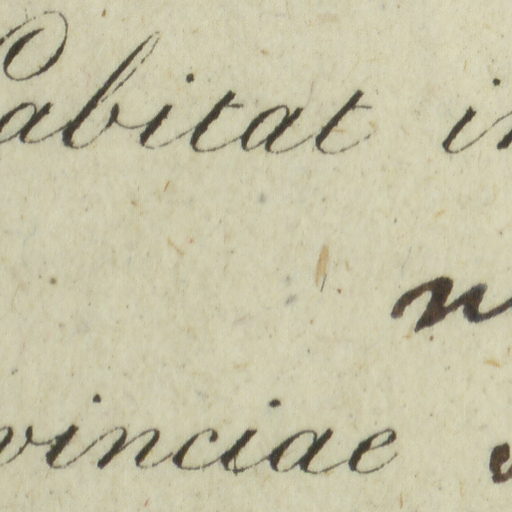 Habitat in
vinciae